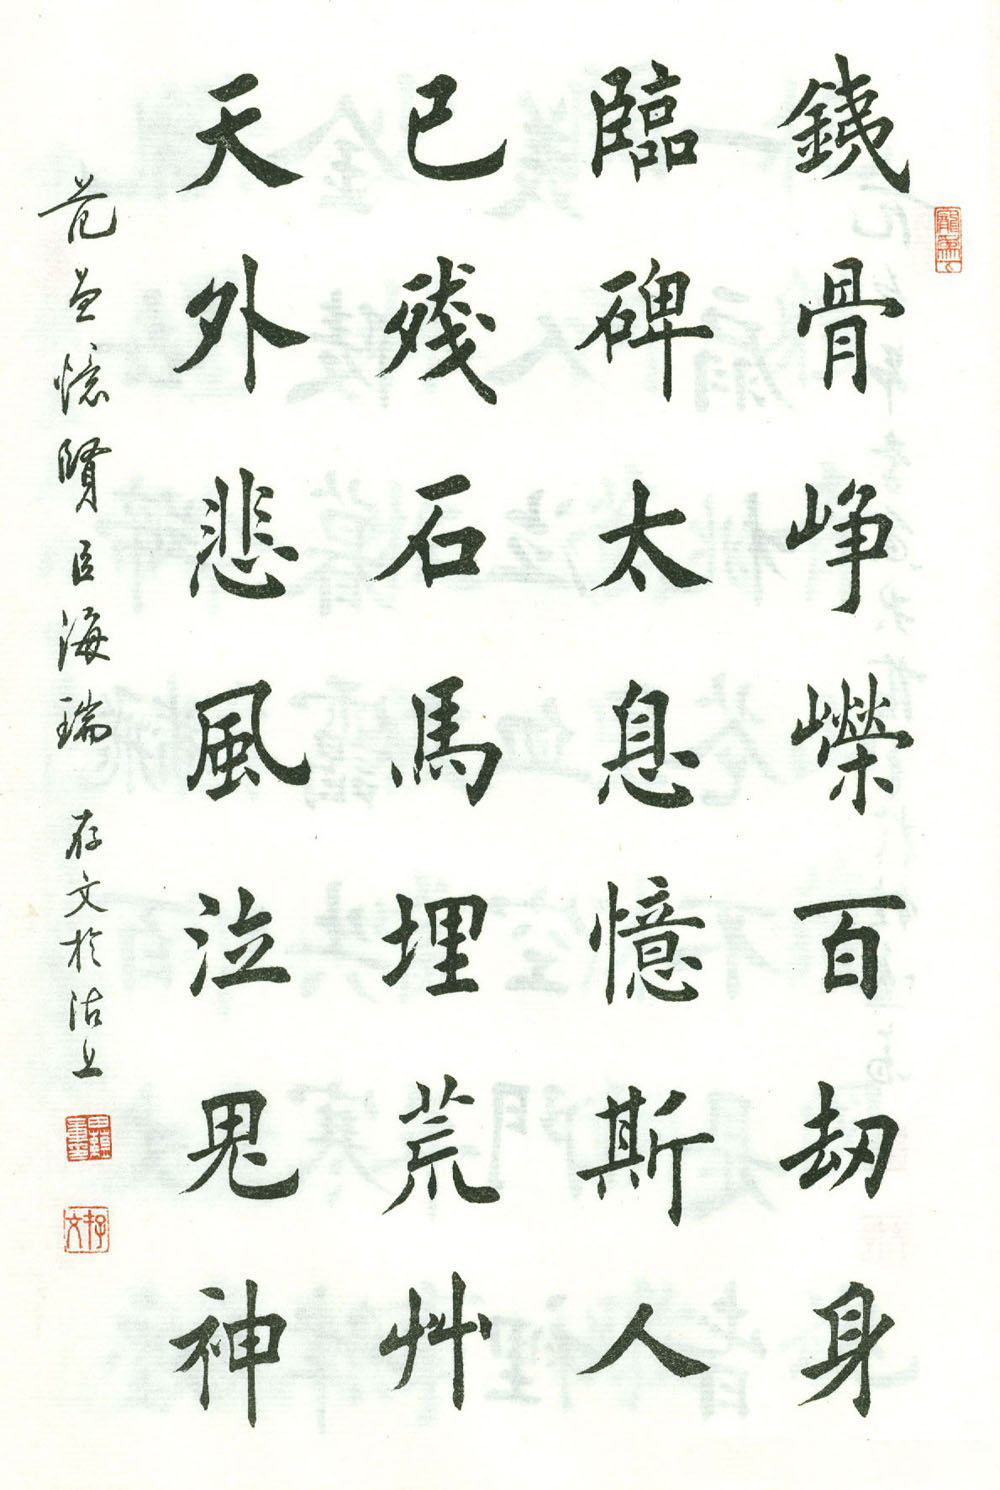 銕骨崢嶸百刼身
臨碑太息憶斯人
已殘石馬埋荒艸
天外悲風泣鬼神
范曾憶賢臣海瑞 存文於沽上
存文